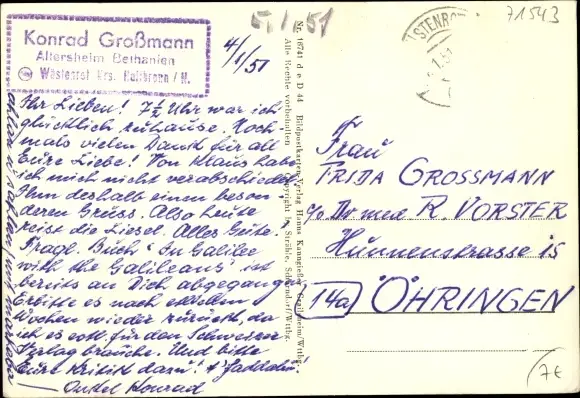 Konrad Großmann
Altersheim Bethanien
Wüstenrot Krs. Heilbronn / N.
5/1/51
4/1/51
71543
Ihr Lieben! 7 1/2 Uhr war ich
glücklich zuhause. Noch-
mals vielen Dank für all
Eure Liebe! Von Klaus habe
ich mich nicht verabschiedet
Ihm deshalb einen beson-
deren Gruss. Also heute
reist die Liesel. Alles Gute!
Fragl. Buch "In Galilee
with the Galileans" ist
bereits an Dich abgegangen
Erbitte es nach
Wochen wieder zurück, da
ich es evtl. für den Schweizer
Verlag brauche. Und bitte
Eure Kritik dazu!
Onkel Konrad
Nr. 16741 d e D 44 Bildpostkarten-Verlag Hanns Kanngießer, Crailsheim/Wttbg.
Alle Rechte vorbehalten Copyright by Strähle, Schorndorf/Wttbg.
Frau
FRIDA GROSSMANN
c/o Dr med R. VORSTER
Hunnenstrasse 15
(14a) ÖHRINGEN
7€